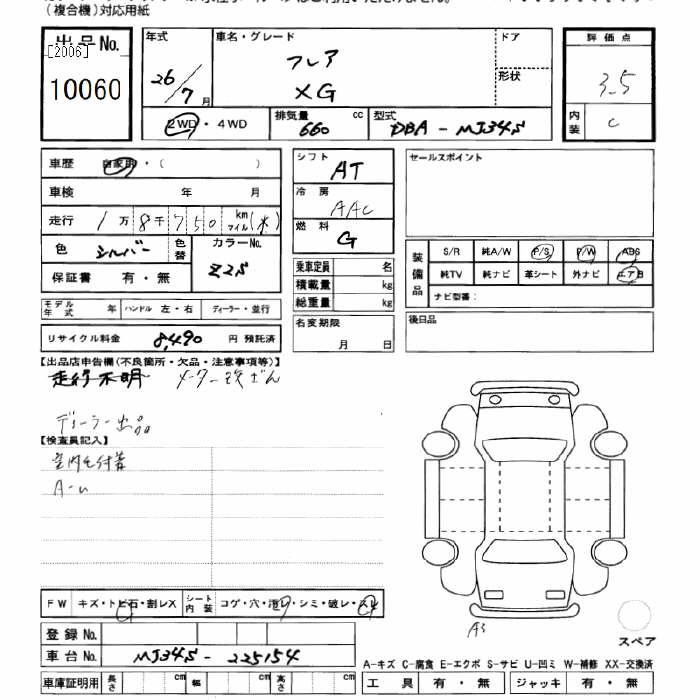 (複合機)対応用紙
出品No.
[2006]
10060
年式
26/7月
車名・グレード
フレア
XG
ドア
形状
評価点
3.5
内装
C
2WD・4WD
排気量 660 cc
型式 DBA-MJ34S
車歴 自家用・( )
車検 年 月
走行 1万8千750 km マイル(メ)
色 シルバー 色替
カラーNo. Z2S
保証書 有・無
モデル年式 年 ハンドル 左・右 ディーラー・並行
リサイクル料金 8,490 円 預託済
シフト AT
冷房 AAC
燃料 G
乗車定員 名
積載量 kg
総重量 kg
名変期限
月 日
セールスポイント
装備品 S/R 純A/W P/S P/W ABS
純TV 純ナビ 革シート 外ナビ エアB
ナビ型番:
後日品
【出品店申告欄(不良箇所・欠品・注意事項等)】
走行不明 メーター改ざん
ディーラー出品
【検査員記入】
室内
A-U
FW キズ・トビ石・割レX シート内装 コゲ・穴・汚レ・シミ・破レ・スレ
登録No.
車台No. MJ34S-225154
車庫証明用 長さ cm 幅 cm 高さ cm
A3
スペア
A-キズ C-腐食 E-エクボ S-サビ U-凹ミ W-補修 XX-交換済
工具 有・無 ジャッキ 有・無